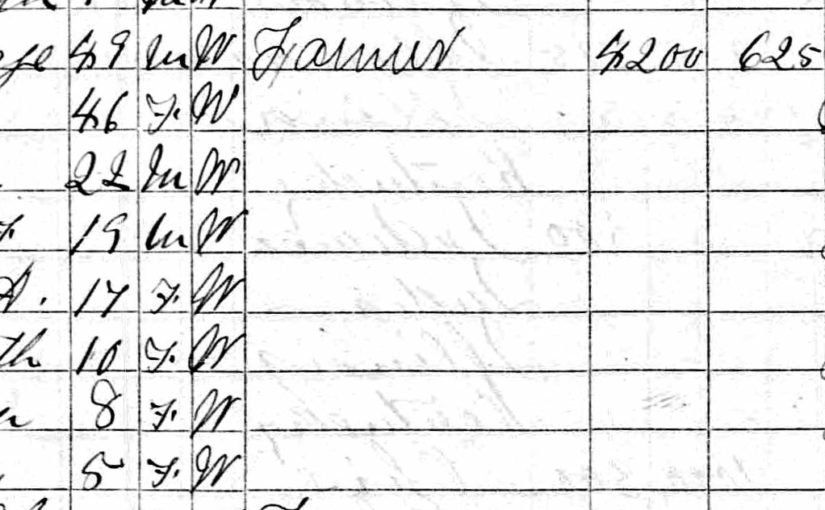 49 M W Farmer 4200 625
46 F. W
22 M W
19 M W
A. 17 F. W
th 10 F. W
8 F. W
5 F. W